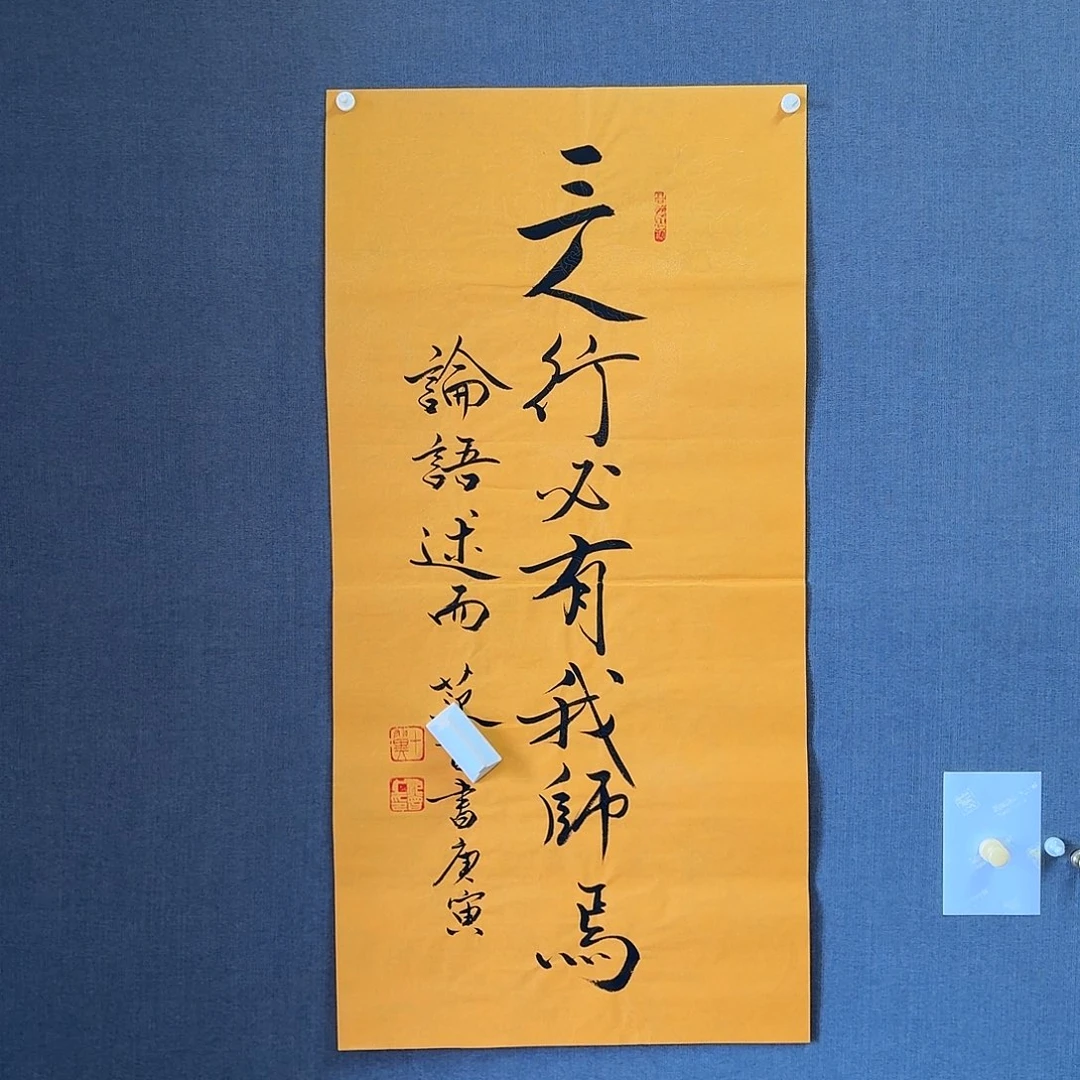 三人行必有我師焉
論語述而 范 書庚寅